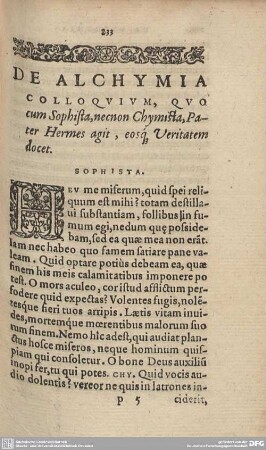 233
DE ALCHYMIA
COLLOQVIVM, QVO
cum Sophista, necnon Chymista, Pa-
ter Hermes agit, eosq́ Veritatem
docet.
SOPHISTA.
HEV me miserum, quid spei reli-
quum est mihi? totam destilla-
ui substantiam, follibus in fu-
mum egi, nedum quę posside-
bam, sed ea quæ mea non erāt.
Iam nec habeo quo famem satiare pane va-
leam. Quid optare potiùs debeam ea, quæ
finem his meis calamitatibus imponere po
test. O mors aculeo, cor istud afflictum per
fodere quid expectas? Volentes fugis, nolē-
tesque fieri tuos arripis. Lætis vitam inui-
des, mortemque mœrentibus malorum suo
rum finem. Nemo hîc adest, qui audiat plan-
ctus hosce miseros, neque hominum quis-
piam qui consoletur. O bone Deus auxiliū
inopi fer, tu qui potes. CHY. Quid vocis au-
dio dolentis? vereor ne quis in latrones in-
P 5 ciderit,